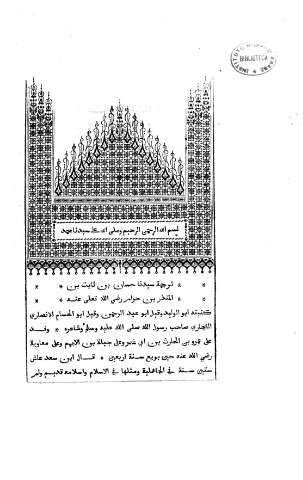 بسم الله الرحمن الرحيم وصلى الله على سيدنا محمد
ترجمة سيدنا حسان بن ثابت بن
المنذر بن حرام رضي الله تعالى عنه
كنيته ابو الوليد وقيل ابو عبد الرحمن وقيل ابو الحسام الانصاري
النجاري صاحب رسول الله صلى الله عليه وسلم وشاعره وفد
على عمرو بن الحارث بن ابي شمر وعلى جبلة بن الايهم وعلى معاوية
رضي الله عنه حين بويع سنة اربعين قال ابن سعد عاش
ستين سنة في الجاهلية ومثلها في الاسلام واسلامه قديم ولم
BIBLIOTECA